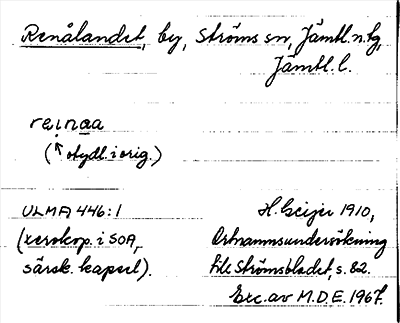 Renålandet, by, Ströms sn, Jämtl. n. tg,
Jämtl. l.
reinaa
(↑ otydl. i orig.)
ULMA 446:1
(xerokop. i SOA,
särsk. kapsel).
H. Geijer 1910,
Ortnamnsundersökning
till Strömsbladet, s. 82.
Exc. av M.D.E. 1967.